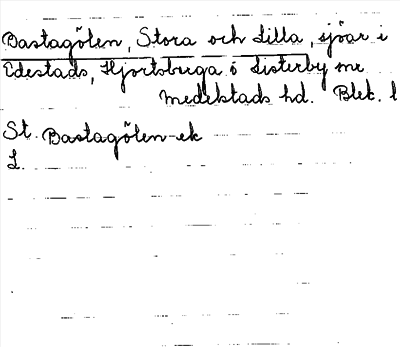 Bastagölen, Stora och Lilla, sjöar i
Edestads, Hjortsberga o Listerby snr
Medelstads hd. Blek. l
St. Bastagölen-ek
L.